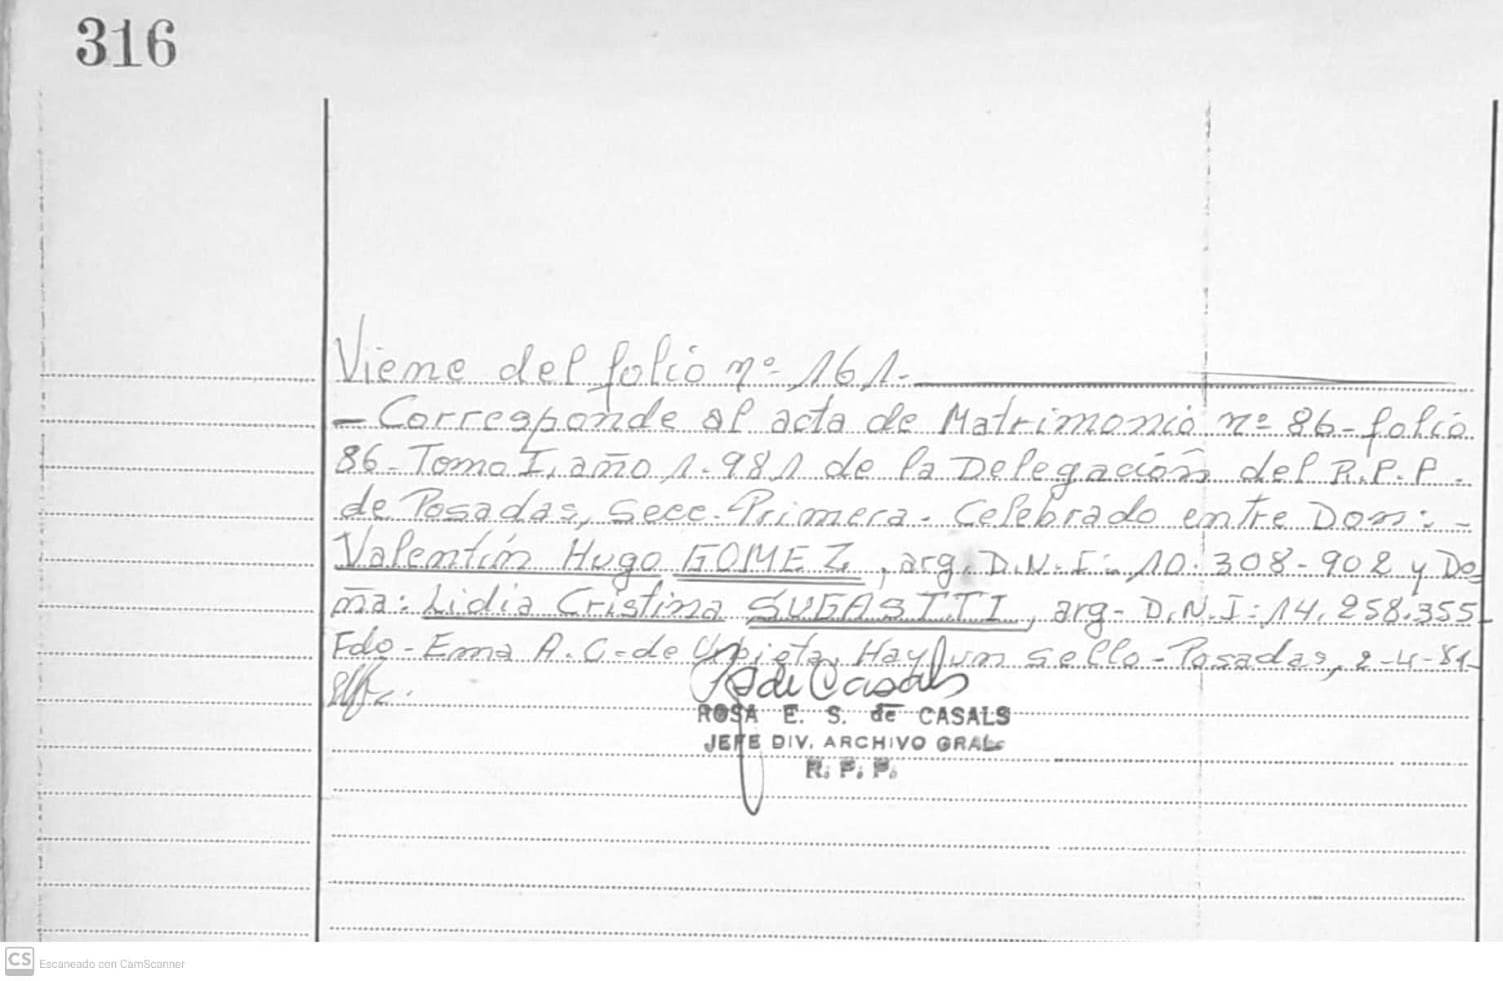 316
Viene del folio nº 161.-
- Corresponde al acta de Matrimonio nº 86- folio
86- Tomo I, año 1.981 de la Delegación del R.P.P.
de Posadas, Secc. Primera. Celebrado entre Don: -
Valentín Hugo GOMEZ, arg. D.N.I: 10.308-902 y Do
ña: Lidia Cristina SUGASTTI, arg- D.N.I: 14.258.355-
Fdo- Ema A. C. de Hay un sello- Posadas, 2-4-81-
R de Casals
ROSA E. S. de CASALS
JEFE DIV. ARCHIVO GRAL.
R. P. P.
CS Escaneado con CamScanner